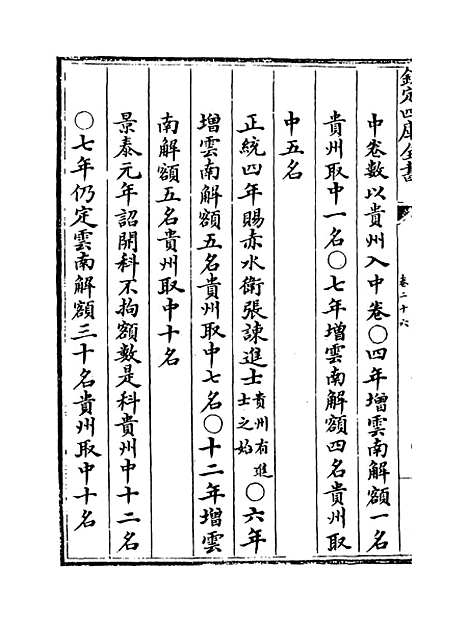 欽定四庫全書
卷二十六
中卷數以貴州入中卷○四年增雲南解額一名
貴州取中一名○七年增雲南解額四名貴州取
中五名
正統四年賜赤水衛張諫進士貴州有進士之始○六年
增雲南解額五名貴州取中七名○十二年增雲
南解額五名貴州取中十名
景泰元年詔開科不拘額數是科貴州中十二名
○七年仍定雲南解額三十名貴州取中十名